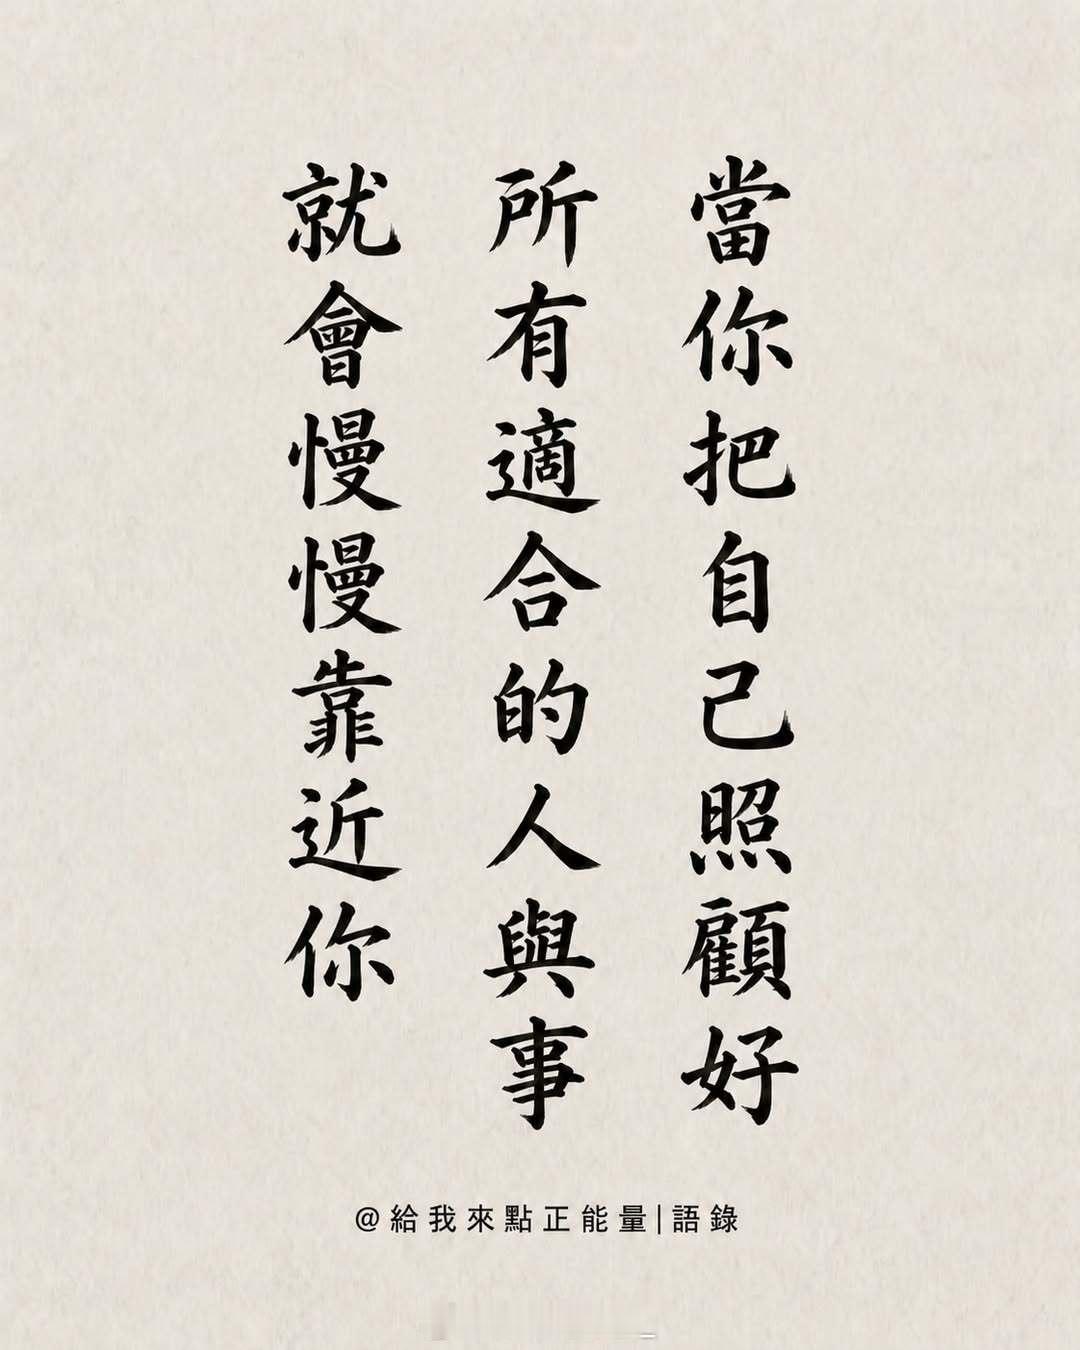 當你把自己照顧好
所有適合的人與事
就會慢慢靠近你
@給我來點正能量|語錄